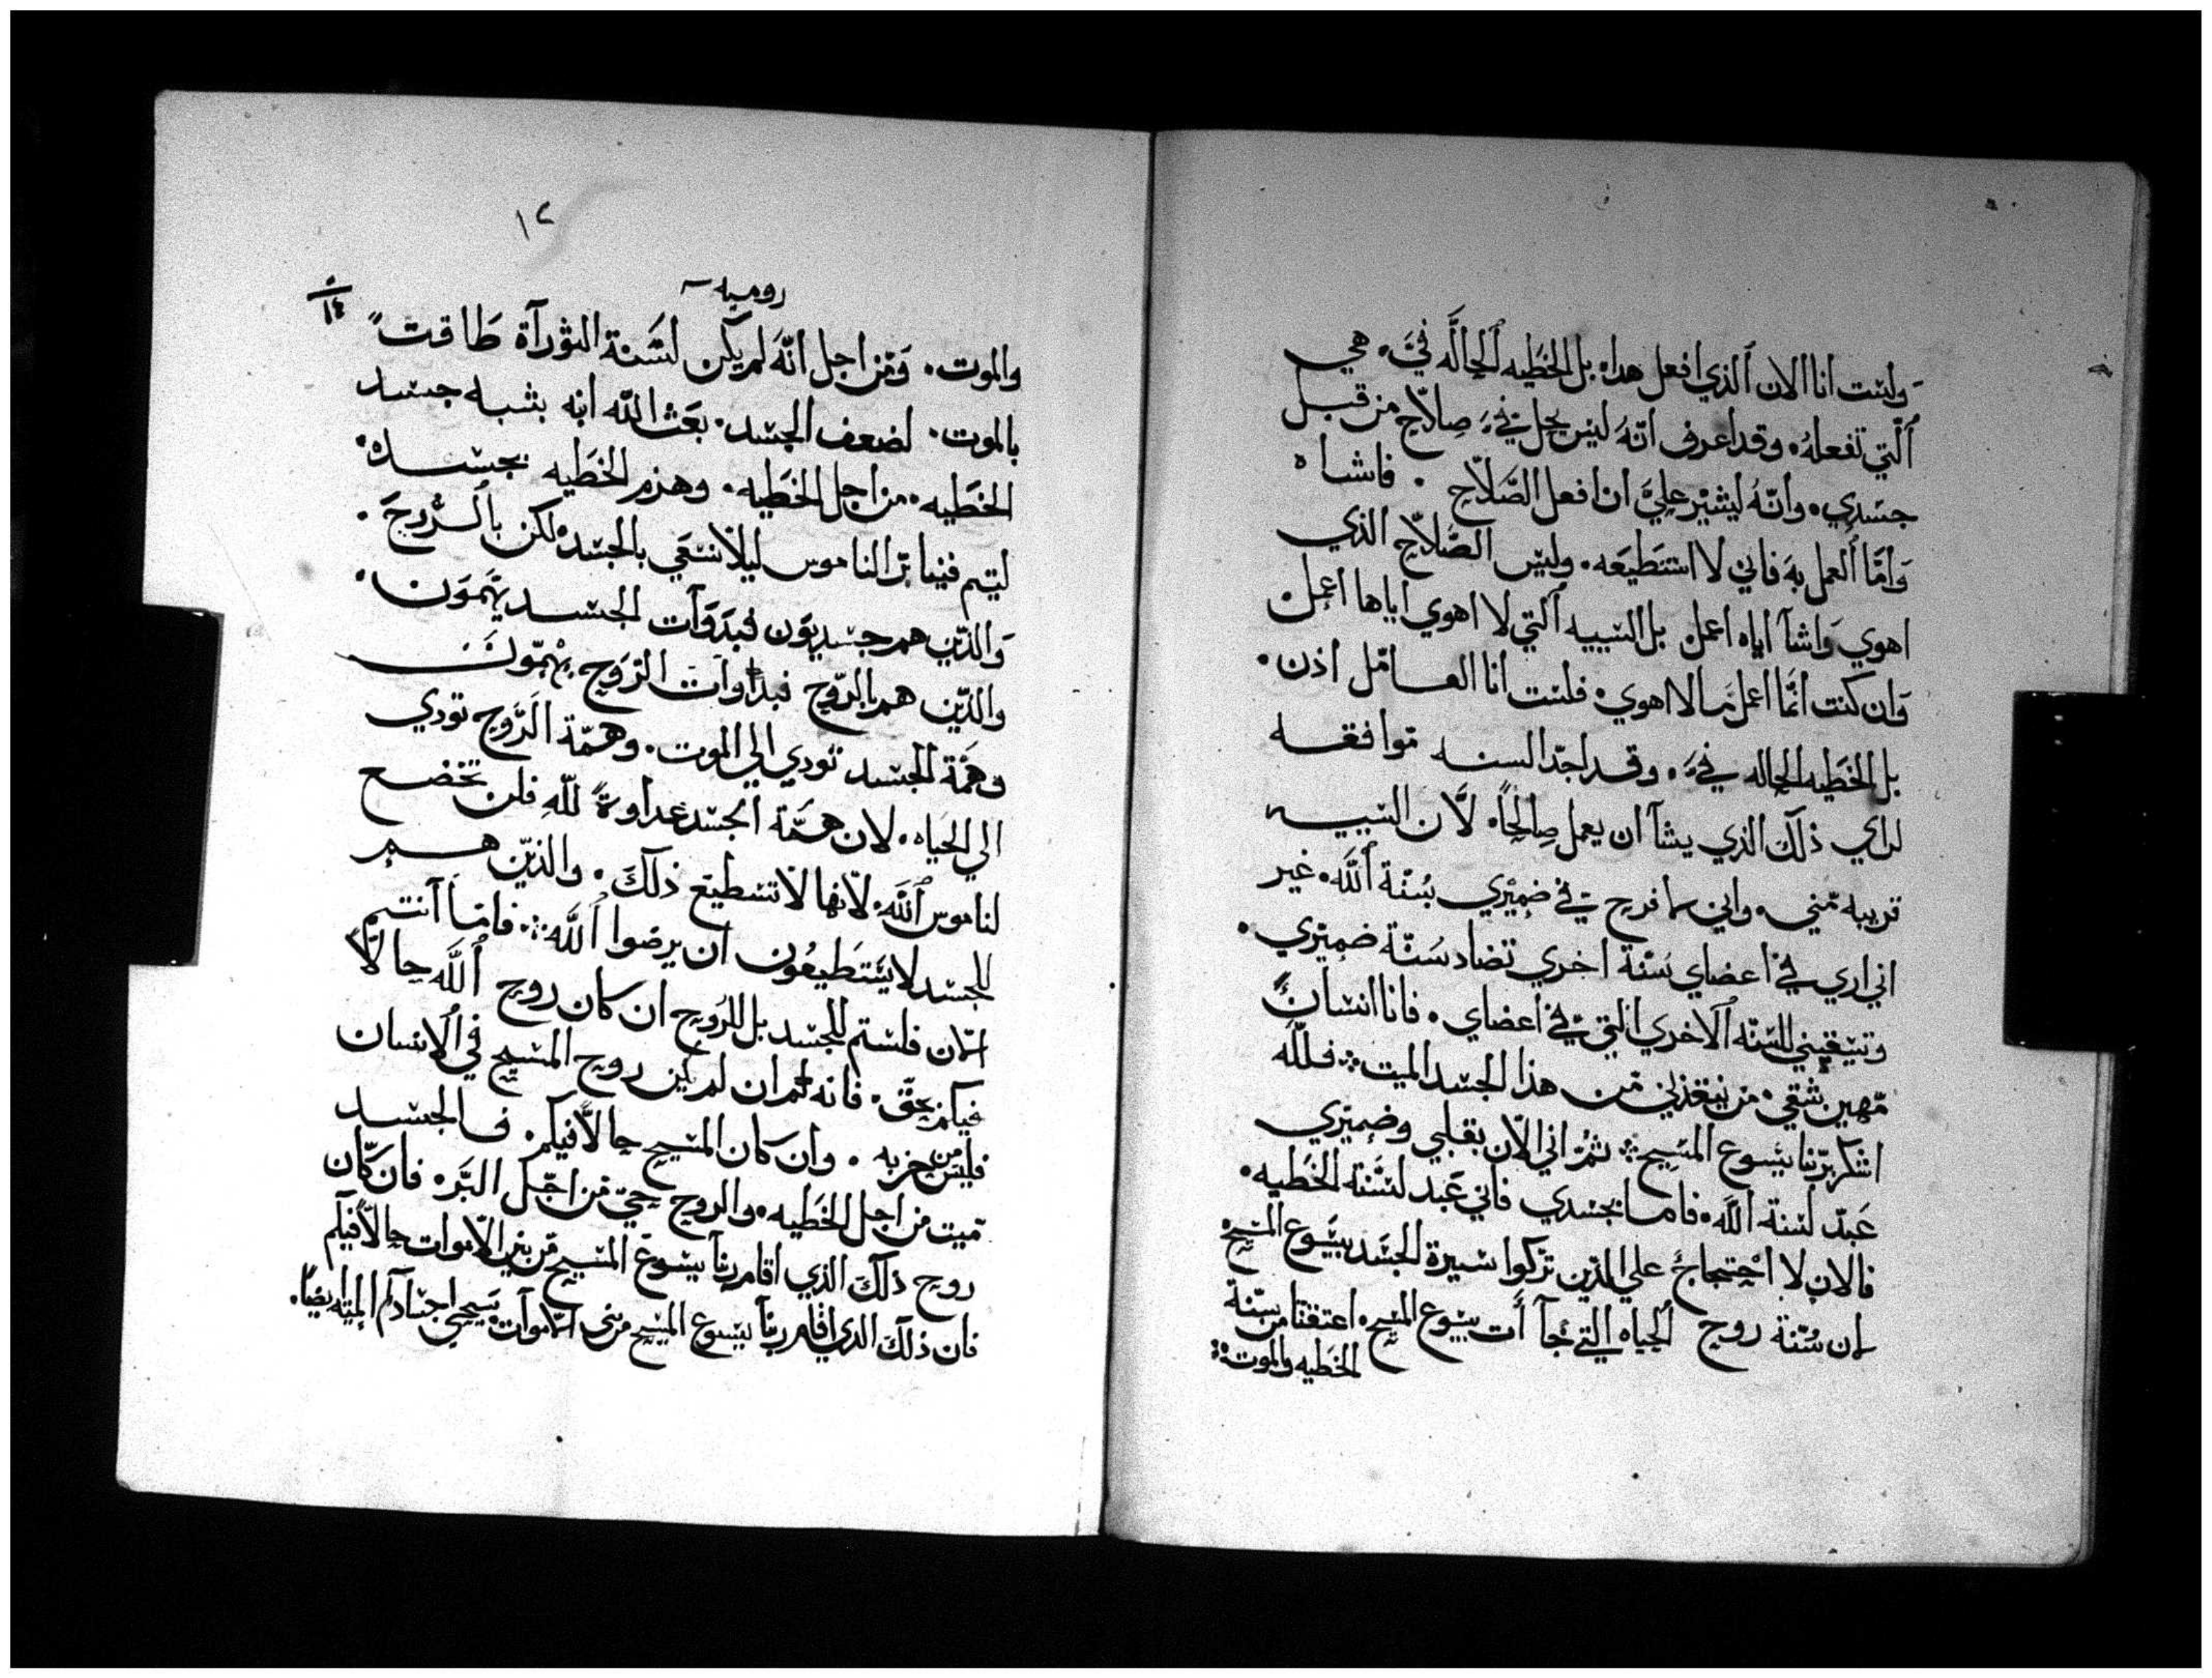 ولست انا الان الذي افعل هدا، بل الخطيه الحاله فيَّ، هي
التي تفعله. وقد اعرف انه ليس يحل فيَّ صلاح من قبل
جسدي. وانه ليشير عليَّ ان افعل الصلاح. فاشاه
واما العمل به فاني لا استطيعه. وليس الصلاح الذي
اهوي واشآ اياه اعمل بل السييه التي لا اهوي اياها اعمل.
وان كنت انما اعمل ما لا اهوي. فلست انا العامل اذن.
بل الخطيه الحاله فيَّ. وقد اجد السنه موافقه
لراي ذلك الذي يشآ ان يعمل صالحاً. لان السييه
قريبه مني. واني لافرح في ضميري بسنة الله. غير
اني اري في اعضاي سنة اخري تضاد سنة ضميري.
للسنه الاخري التي في اعضاي. فانا انسان
مهين شقي. من ينقذني من هذا الجسد الميت؛ فلله
اشكر بربنا يسوع المسيح؛ ثم اني الان بقلبي وضميري
عبد لسنة الله. فاما بجسدي فاني عبد لسنة الخطيه.
فالان لا احتجاج علي الذين تركوا سيرة الجسد بيسوع المسيح
لان سنة روح الحياه التي جآات بيسوع المسيح. اعتقتنا من سنة
الخطيه والموت؛
١٢
روميه
٨
١٤
والموت. ومن اجل انه لم يكن لسنة التورآة طاقت
بالموت. لضعف الجسد. بعث الله ابنه بشبه جسد
الخطيه. من اجل الخطيه. وهزم الخطيه بجسده.
ليتم فينا بر الناموس ليلا نسعي بالجسد، لكن بالروح.
والذين هم جسديون فبدوآت الجسد يهمون.
والذين هم بالروح فبذاوات الروح يهمون
وهمة الجسد تودي الي الموت. وهمة الروح تودي
الي الحياه. لان همة الجسد عداوة لله فلن تخضع
لناموس الله. لانها لا تسطيع ذلك. والذين هم
للجسد لا يستطيعون ان يرضوا الله؛ فاما انتم
الان فلستم للجسد بل للروح ان كان روح الله حالا
فيكم بحق. فانه ان لم يكن روح المسيح في الانسان
فليس من حزبه. وان كان المسيح حالا فيكم. فالجسد
ميت من اجل الخطيه. والروح حي من اجل البر. فان كان
روح ذلك الذي اقام ربنا يسوع المسيح من بين الاموات حالا فيكم
فان ذلك الذي اقام ربنا يسوع المسيح من الاموات، سيحي اجسادكم الميته ايضا.